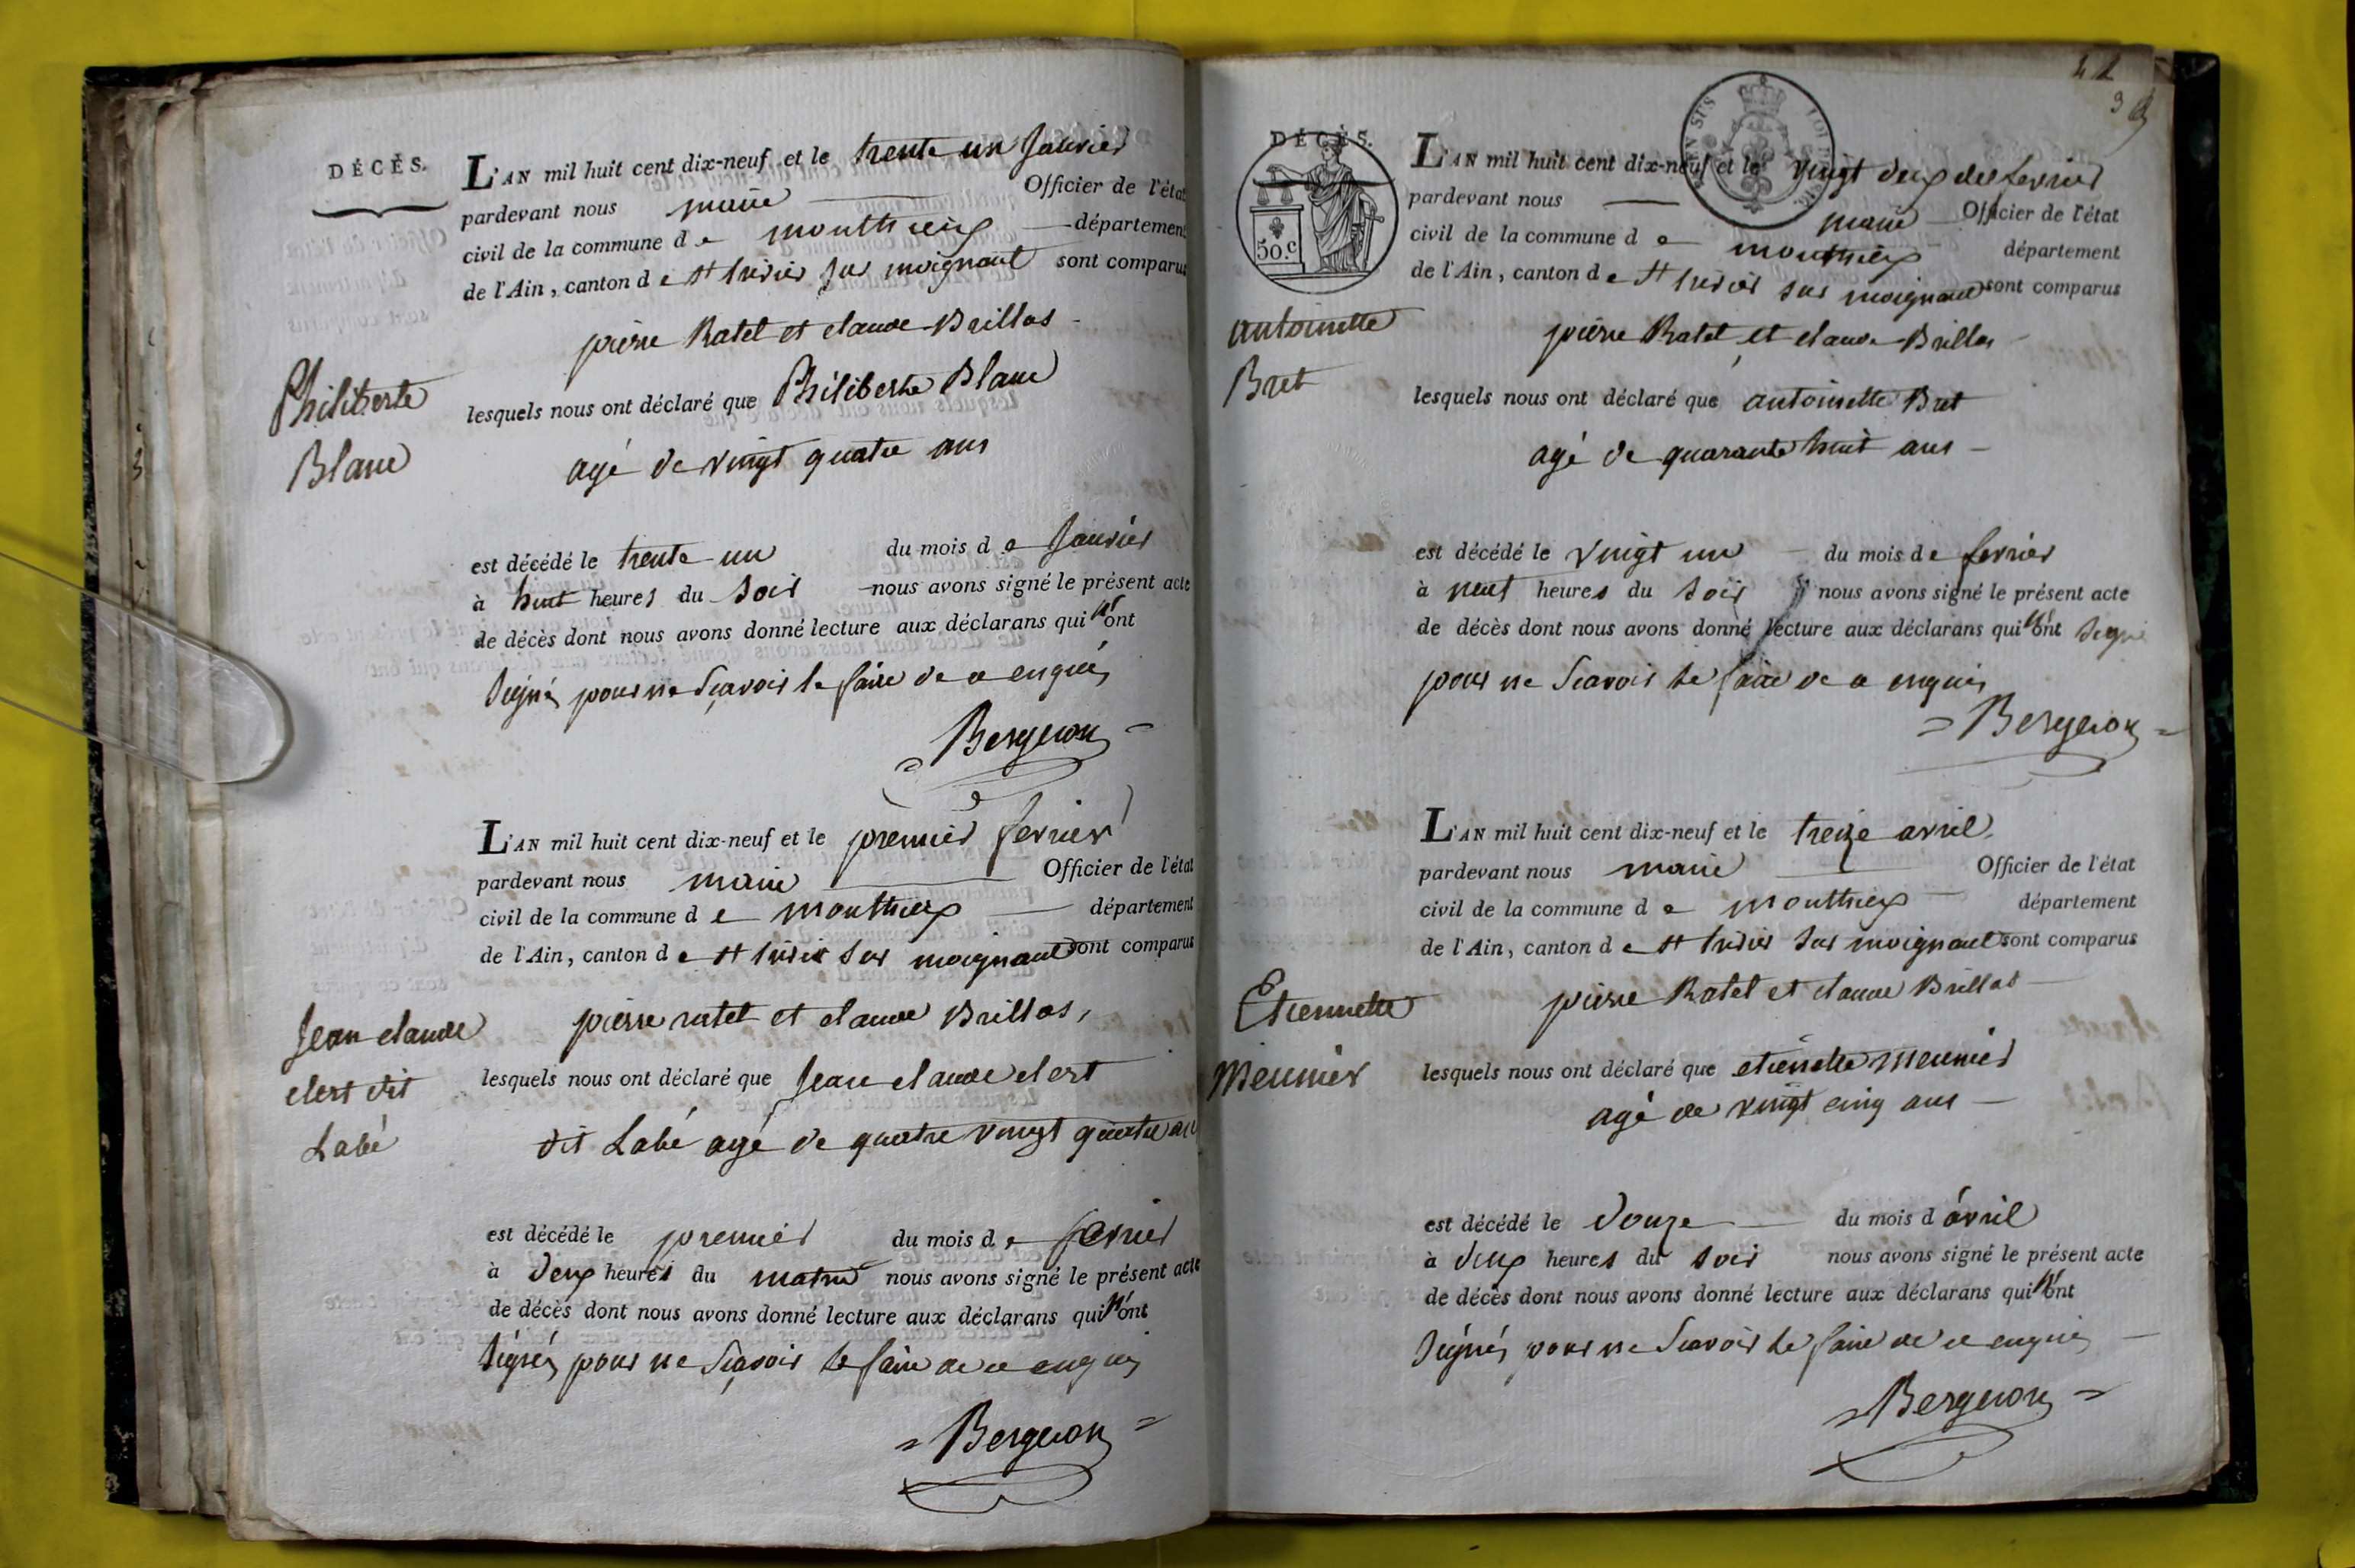 DÉCÈS.
L'AN mil huit cent dix-neuf et le trente un Janvier
pardevant nous maire Officier de l'état
civil de la commune de monthieux département
de l'Ain, canton de St trivier sur moignant sont comparus
pierre Ratel et claude Brillas
Philiberte
Blanc
lesquels nous ont déclaré que Philiberte Blanc
agé de vingt quatre ans
est décédé le trente un du mois de Janvier
à huit heures du soir nous avons signé le présent acte
de décès dont nous avons donné lecture aux déclarans qui n'ont
signés pour ne sçavoir le faire de ce enquis
Bergeron
L'AN mil huit cent dix-neuf et le premier fevrier
pardevant nous maire Officier de l'état
civil de la commune de monthieux département
de l'Ain, canton de St trivier sur moignant sont comparus
pierre ratel et claude Brillas,
Jean claude
clert dit
Labé
lesquels nous ont déclaré que Jean claude clert
dit Labé agé de quatre vingt quatre ans
est décédé le premier du mois de fevrier
à deux heures du matin nous avons signé le présent acte
de décès dont nous avons donné lecture aux déclarans qui n'ont
signés pour ne sçavoir le faire de ce enquis
Bergeron
DÉCÈS.
50.c
L'AN mil huit cent dix-neuf et le vingt deux fevrier
pardevant nous maire Officier de l'état
civil de la commune de monthieux département
de l'Ain, canton de St trivier sur moignant sont comparus
pierre Ratel et claude Brillas
antoinette
Bret
lesquels nous ont déclaré que antoinette Bret
agé de quarante huit ans
est décédé le vingt un du mois de fevrier
à neuf heures du soir nous avons signé le présent acte
de décès dont nous avons donné lecture aux déclarans qui n'ont signé
pour ne scavoir le faire de ce enquis
Bergeron
L'AN mil huit cent dix-neuf et le treize avril,
pardevant nous maire Officier de l'état
civil de la commune de monthieux département
de l'Ain, canton de St trivier sur moignant sont comparus
pierre Ratel et claude Brillas
Etiennette
Meunier
lesquels nous ont déclaré que etiennette meunier
agé de vingt cinq ans
est décédé le douze du mois d avril
à deux heures du soir nous avons signé le présent acte
de décès dont nous avons donné lecture aux déclarans qui n'ont
signés pour ne scavoir le faire de ce enquis
Bergeron